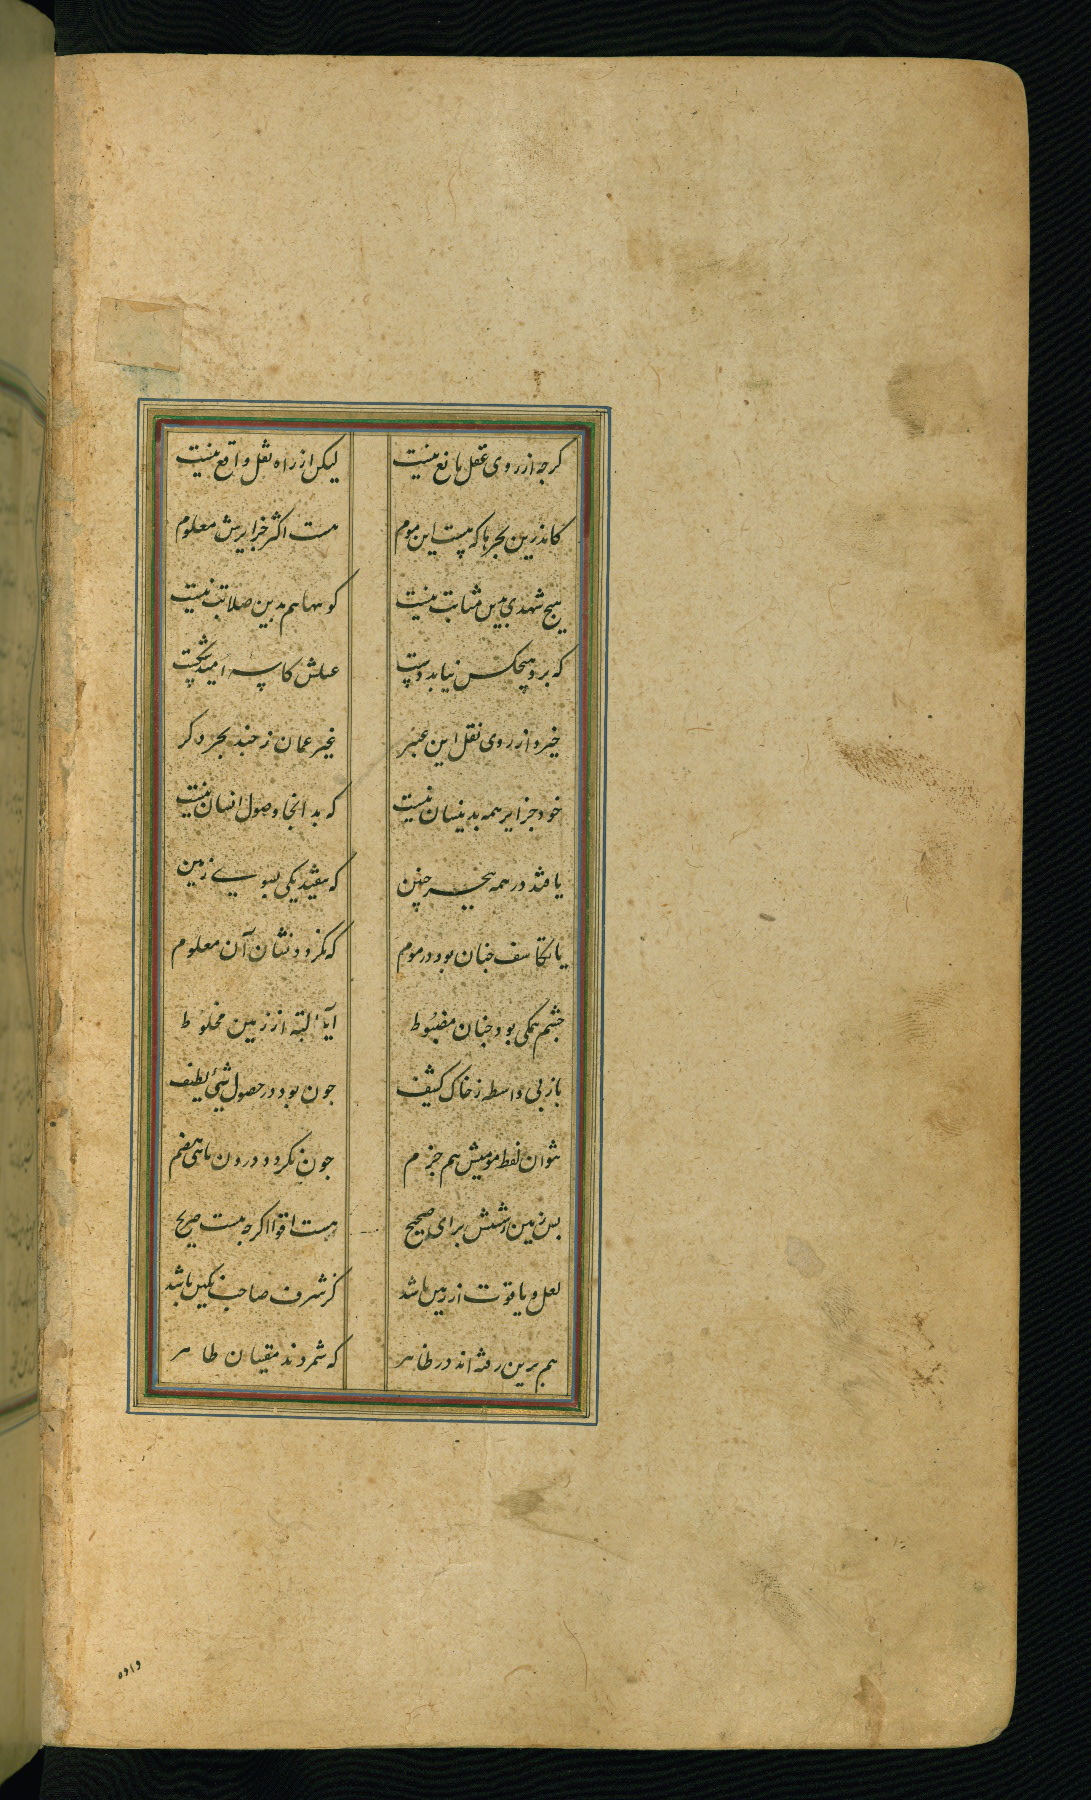 کرجه از روی عقل مانع نیست لیکن از راه نقل واقع نیست
کاندرین بحرها که هست این موم هست اکثر جزایرش معلوم
هیچ شهدی بدین مثابت نیست کو بها هم بدین صلابت نیست
که برو هیچکس نیابد دست عسلش کاسه امید شکست
خیزد از روی نقل این عنبر غیر عمان ز چند بحر دکر
خود جزایر همه بدینسان نیست که بد انجا وصول انسان نیست
یا فتد در همه چنین که نیفتد یکی بسوی زمین
یا تکاسف جنان بود در موم که نکردد نشان آن معلوم
جشم همکی بود جنان مضبوط آید البته از زمین مخلوط
باز بی واسطه ز خاک کثیف جون بود در حصول شیٔ لطیف
نتوان لفظ مومیش هم جزم جون نکردد درون ماهی هضم
بس زمین زادنش برای صحیح هست اقوا اکرجه هست صریح
لعل و یاقوت از زمین باشد کز شرف صاحب نکین باشد
هم برین رفته اند در ظاهر که شمردند مقبیان طاهر
و او ه